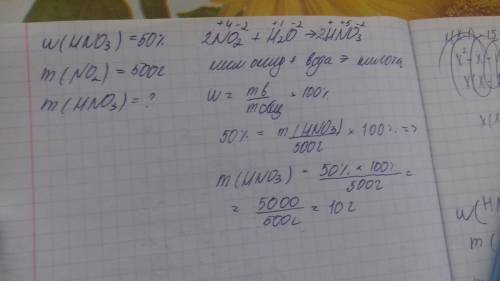 w(HNO₃) = 50%
m(NO₂) = 500г
m(HNO₃) = ?
+4 -2 +1 -2 + +5 -2
2NO₂ + H₂O → 2HNO₃
оксид + вода → кислота
w = mв / mобщ × 100%
50% = m(HNO₃) / 500г × 100% =>
m(HNO₃) = 50% × 100% / 500г =
= 5000 / 500г = 10г
w(HN
m(